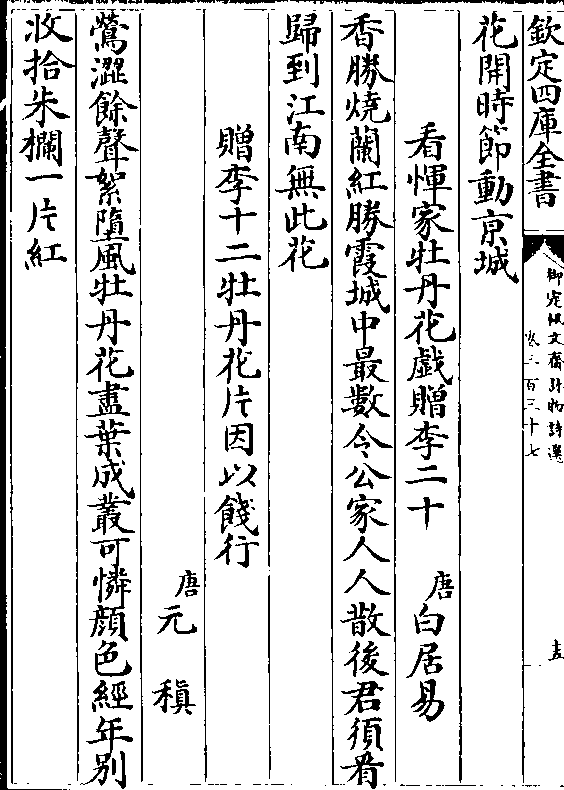 欽定四庫全書
御定佩文齋詠物詩選
卷三百三十七
花開時節動京城
看惲家牡丹花戲贈李二十
唐白居易
香勝燒蘭紅勝霞城中最數令公家人人散後君須看
歸到江南無此花
贈李十二牡丹花片因以餞行
唐元稹
鶯澀餘聲絮墮風牡丹花盡葉成叢可憐顔色經年別
收拾朱欄一片紅